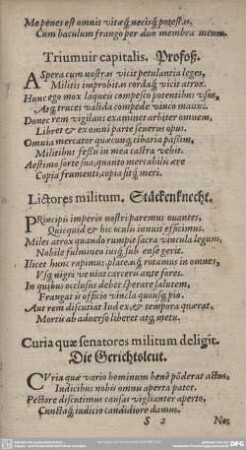 Me penes est omnis vitæq́; necisq́; potestas,
Cum baculum frango per duo membra meum.
Triumuir capitalis. Profoß.
ASpera cum nostras vicit petulantia leges,
Militis improbitas cordaq́; vicit atrox.
Hunc ego mox laqueis compesco potentibus vsus,
Atq; truces valida compede vinco manus.
Donec rem vigilans examinet arbiter omnem,
Libret & ex omni parte seuerus opus.
Omnia mercator quæcunq; cibaria passim,
Militibus fessis in mea castra vehit.
Aestimo sorte sua, quanto mercabilis ære
Copia frumenti, copia sitq́; meri.
Lictores militum. Stäckenknecht.
PRincipis imperio nostri paremus ouantes,
Quicquid & hic oculis innuit efficimus.
Miles atrox quando rumpit sacra vincula legum,
Nobile fulmineo iusq́; sub ense gerit.
Ilicet hunc rapimus, plateaq́; rotamus in omnes,
Vsq; nigri veniat carceris ante fores.
In quibus occlusus debet sperare salutem,
Frangat is officio vincla quousq; pio.
Aut rem discutiat Iudex, & tempora quærat,
Mortis ab aduerso liberet atq; metu.
Curia quæ senatores militum deligit.
Die Gerichtsleut.
CVria quæ vario hominum benè põderat actus,
Iudicibus nobis omnu aperta patet.
Pectore discutimus causas vigilanter aperto,
Cunctaq́; iudicio candidiore damus.
S 2
Nos